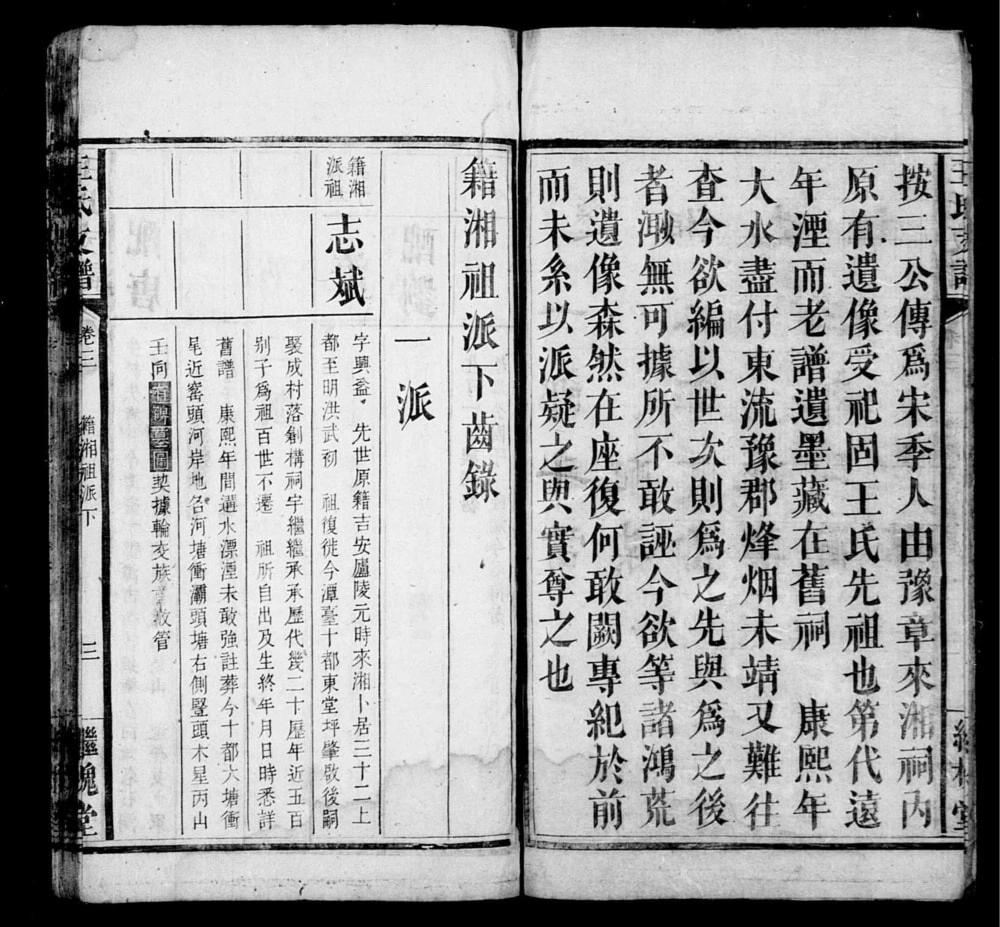 按三公傳爲宋季人由豫章來湘祠內
原有遺像受祀固王氏先祖也第代遠
年湮而老譜遺墨藏在舊祠　康熙年
大水盡付東流豫郡烽烟未靖又難往
查今欲編以世次則爲之先與爲之後
者溵無可據所不敢誣今欲等諸鴻荒
則遺像森然在座復何敢闕專紀於前
而未系以派疑之與實尊之也
籍湘祖派下齒錄
一派
籍湘
派祖
志斌
字興益　先世原籍吉安廬陵元時來湘卜居三十二上
都至明洪武初　祖復徙今潭臺十都東堂坪肇啟後嗣
聚成村落創構祠宇繼繼承承歷代幾二十歷年近五百
別子爲祖百世不遷　祖所自出及生終年月日時悉詳
舊譜　康熙年間遘水漂湮未敢強註葬今十都六塘衝
尾近窰頭河岸地名河塘衝灞頭塘右側豎頭木星丙山
壬向有碑圖契據輪交族收管
王氏支譜
卷三　籍湘祖派下
三
繼槐堂